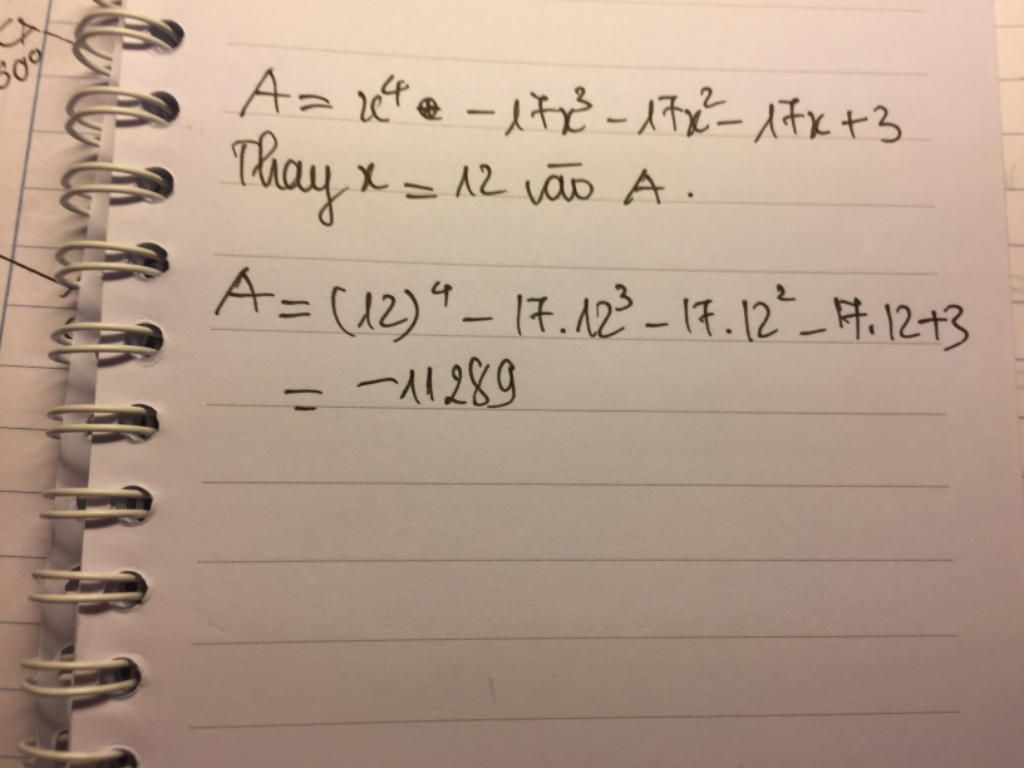 A = x⁴ - 17x³ - 17x² - 17x + 3
Thay x = 12 vào A.
A = (12)⁴ - 17.12³ - 17.12² - 17.12 + 3
= -11289